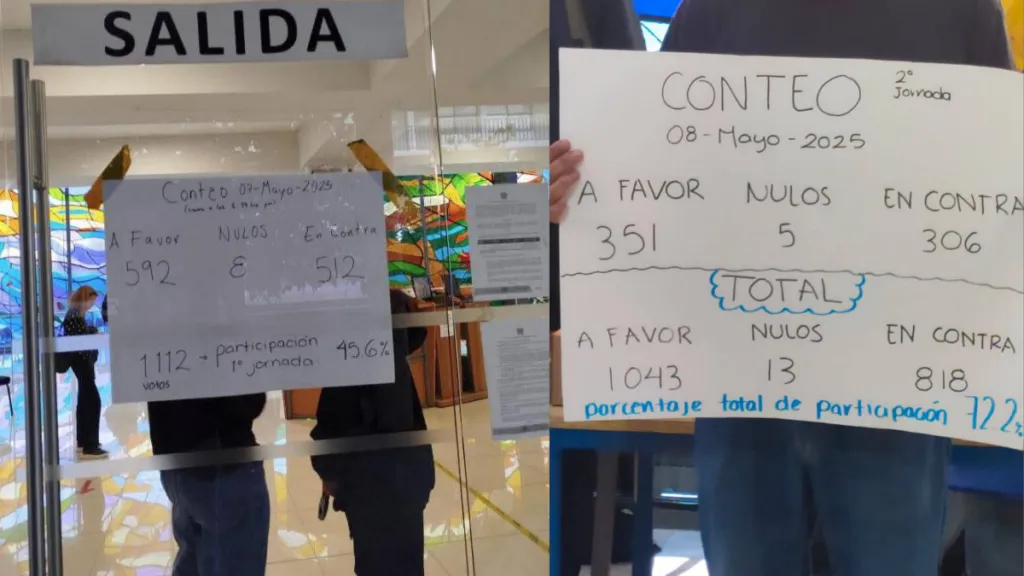 SALIDA
Conteo 07-Mayo-2025
A Favor NULOS En Contra
592 8 512
1112 → participación 45.6%
votos 1° jornada
CONTEO 2° Jornada
08-Mayo-2025
A FAVOR NULOS EN CONTRA
351 5 306
TOTAL
A FAVOR NULOS EN CONTRA
1043 13 818
porcentaje total de participación 72.2%